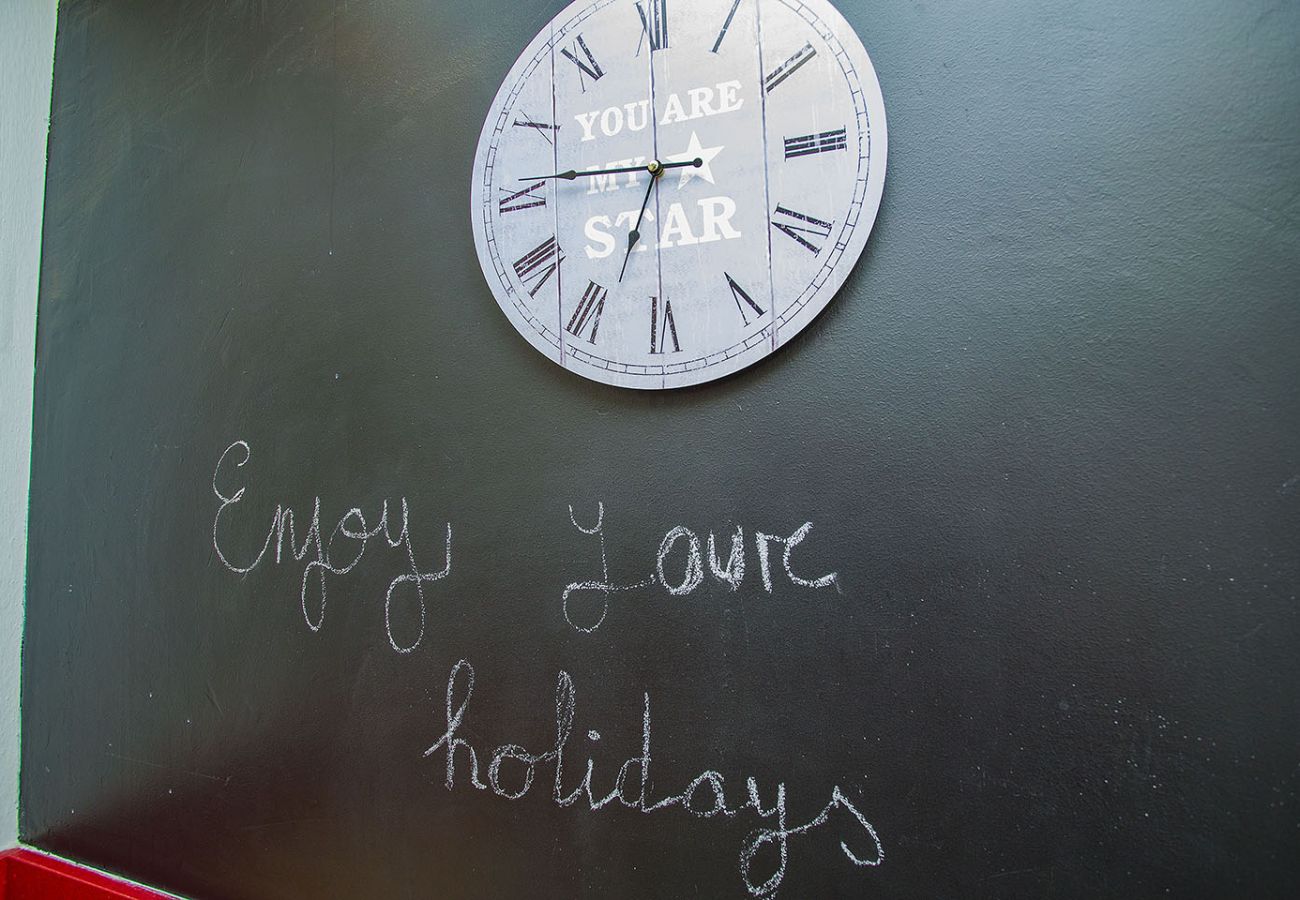 XII
I
II
III
IV
V
VI
VII
VIII
IX
X
XI
YOU ARE
MY
STAR
Enjoy Youre
holidays